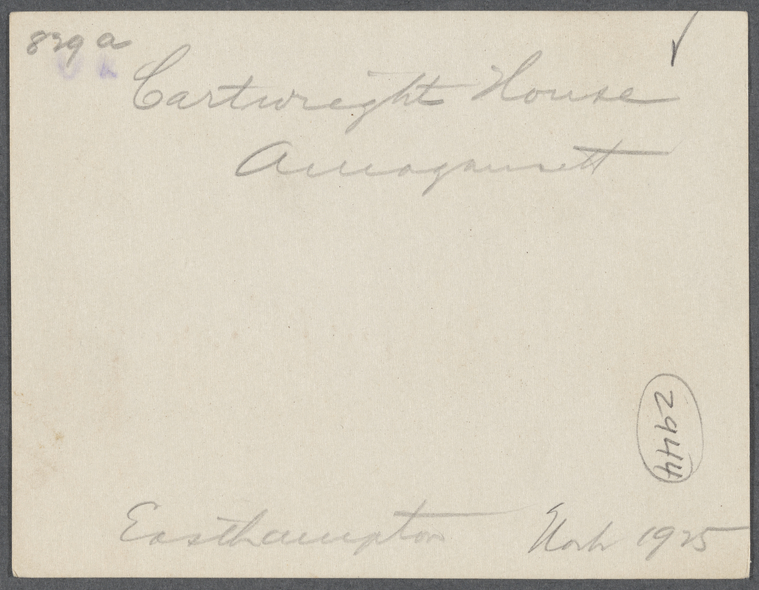 829a
Cartwright House
Amagansett
29444
Easthampton 1925